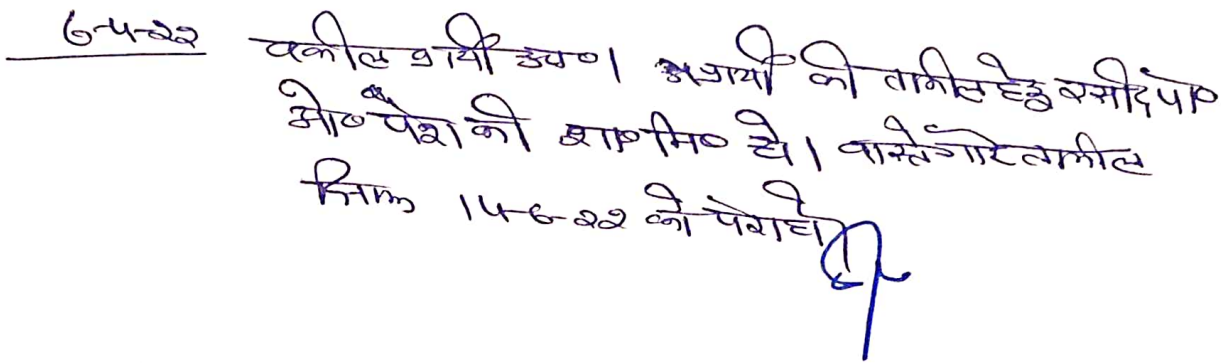 6-4-22 वकील प्रार्थी उप०। अप्रार्थी की तामील हेतु रसीद पो०
ओ० पेश की शा० मि० हो। वास्ते गौर तामील
दिनांक 14-6-22 को पेश हो